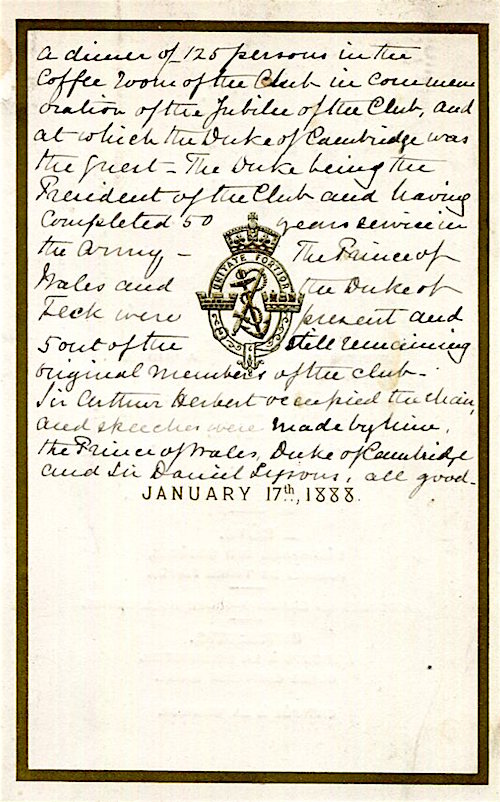 A dinner of 125 persons in the
Coffee Room of the Club in commem
oration of the Jubilee of the Club, and
at which the Duke of Cambridge was
the guest - The Duke being the
President of the Club and having
completed 50 years service in
the Army - The Prince of
Wales and the Duke of
Teck were present and
5 out of the still remaining
original members of the club -
Sir Arthur Herbert occupied the chair,
and speeches were made by him,
the Prince of Wales, Duke of Cambridge
and Sir Daniel Lysons, all good -
UNITATE FORTIOR
JANUARY 17th, 1888.